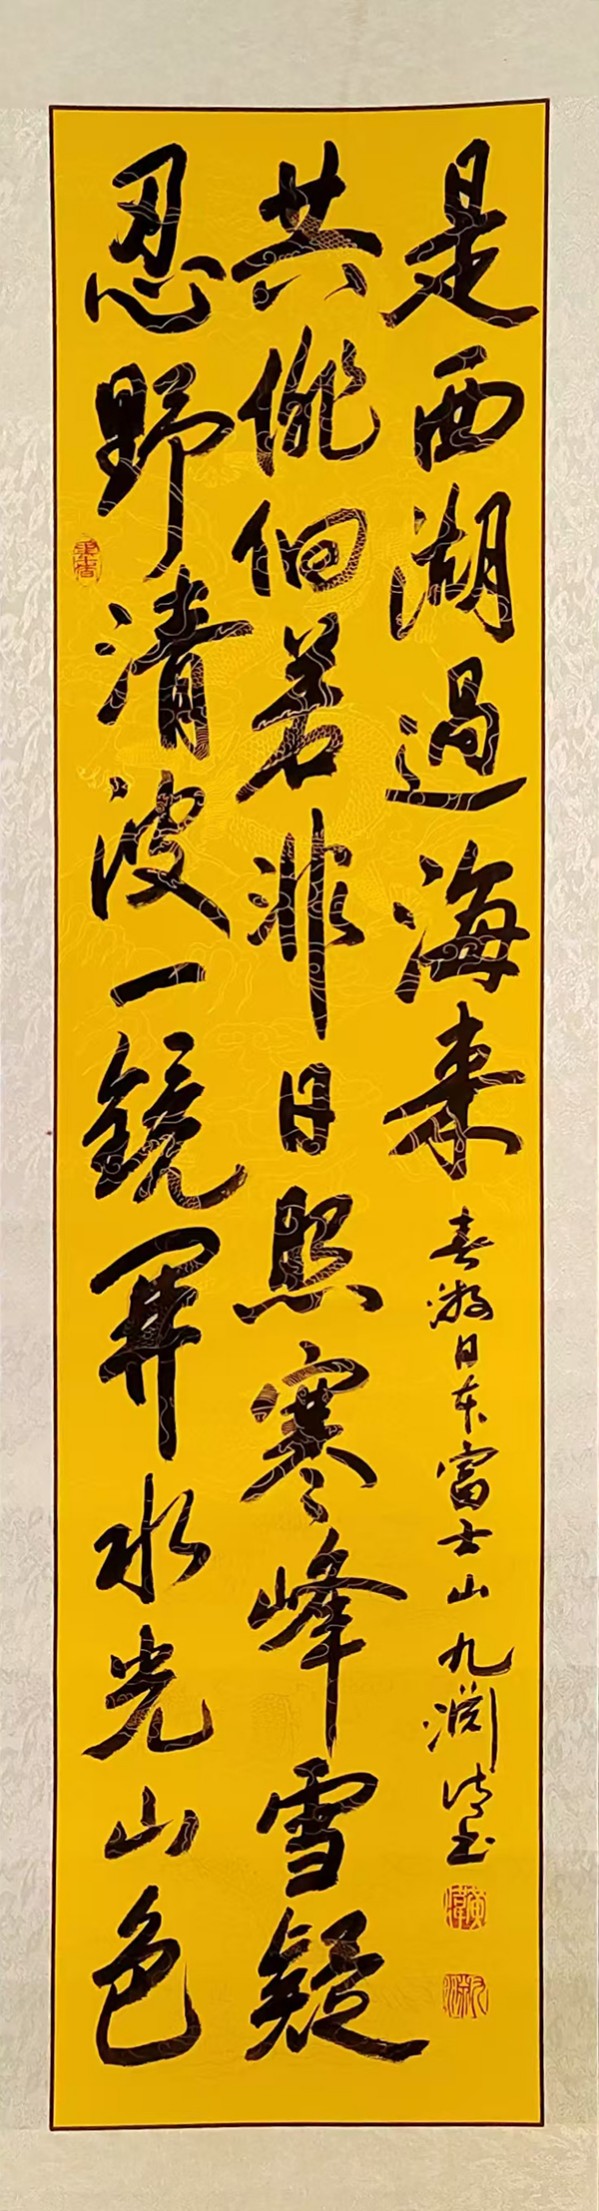 忍野清波一鏡開水光山色
共徘徊若非日照寒峰雪疑
是西湖過海來
春游日本富士山九淵